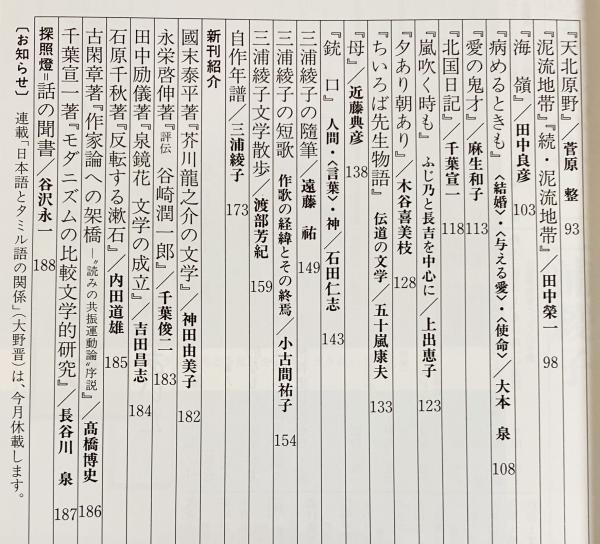 『天北原野』／菅原　整　93
『泥流地帯』『続・泥流地帯』／田中榮一　98
『海　嶺』／田中良彦　103
『病めるときも』〈結婚〉・〈与える愛〉・〈使命〉／大本　泉　108
『愛の鬼才』／麻生和子　113
『北国日記』／千葉宣一　118
『嵐吹く時も』ふじ乃と長吉を中心に／上出恵子　123
『夕あり朝あり』／木谷喜美枝　128
『ちいろば先生物語』伝道の文学／五十嵐康夫　133
『母』／近藤典彦　138
『銃　口』人間・〈言葉〉・神／石田仁志　143
三浦綾子の随筆／遠藤　祐　149
三浦綾子の短歌　作歌の経緯とその終焉／小古間祐子　154
三浦綾子文学散歩／渡部芳紀　159
自作年譜／三浦綾子　173
新刊紹介
國末泰平著『芥川龍之介の文学』／神田由美子　182
永栄啓伸著『評伝　谷崎潤一郎』／千葉俊二　183
田中励儀著『泉鏡花　文学の成立』／吉田昌志　184
石原千秋著『反転する漱石』／内田道雄　185
古閑章著『作家論への架橋―"読みの共振運動論"序説』／髙橋博史　186
千葉宣一著『モダニズムの比較文学的研究』／長谷川　泉　187
探照燈＝話の聞書／谷沢永一　188
〔お知らせ〕　連載「日本語とタミル語の関係」（大野晋）は、今月休載します。